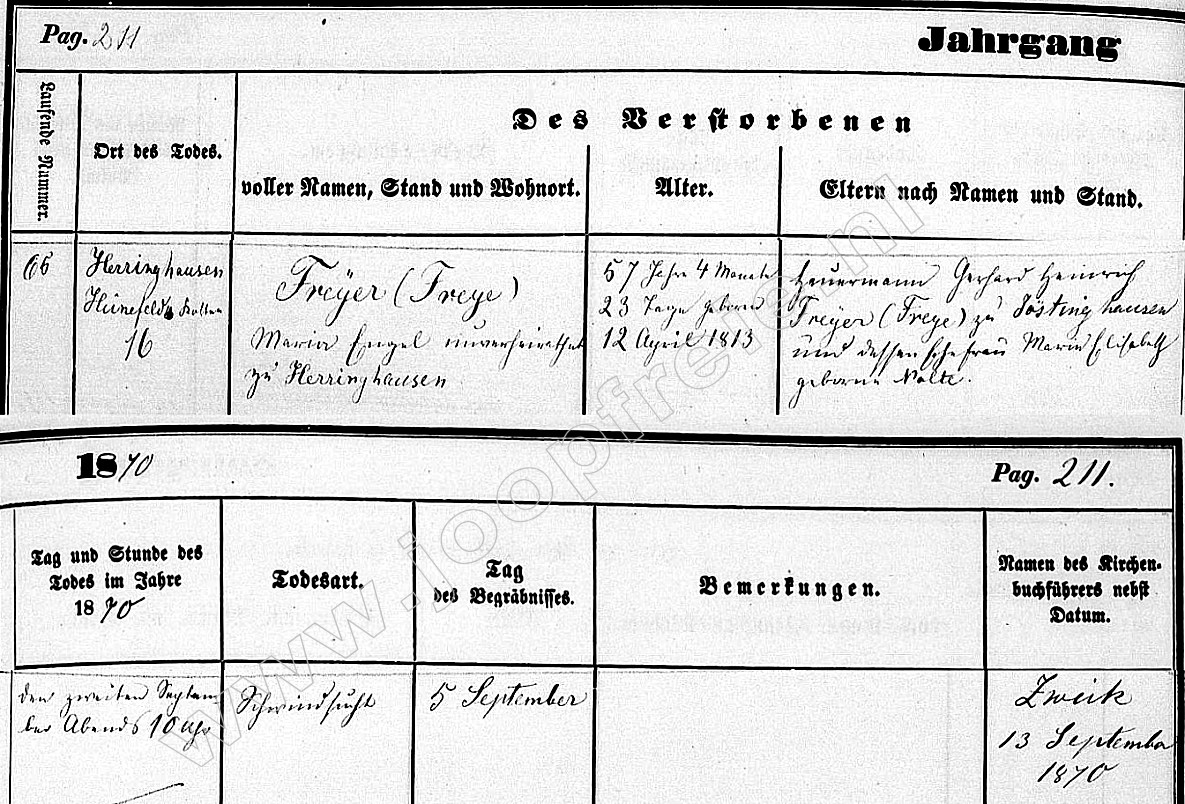 Pag. 211
Jahrgang
Laufende Nummer.
Ort des Todes.
Des Verstorbenen
voller Namen, Stand und Wohnort.
Alter.
Eltern nach Namen und Stand.
66
Herringhausen
Hünefelds Kotten
16
Freyer (Freye)
Maria Engel unverheirathet
zu Herringhausen
57 Jahre 4 Monate
23 Tage geboren
12 April 1813
Heuermann Gerhard Heinrich
Freyer (Freye) zu Jöstinghausen
und dessen Ehefrau Maria Elisabeth
geborne Nolte.
1870
Pag. 211.
Tag und Stunde des
Todes im Jahre
1870
Todesart.
Tag
des Begräbnisses.
Bemerkungen.
Namen des Kirchen-
buchführers nebst
Datum.
den zweiten Septem-
ber Abends 10 Uhr
Schwindsucht
5 September
13 September
1870
www.joopfreije.nl